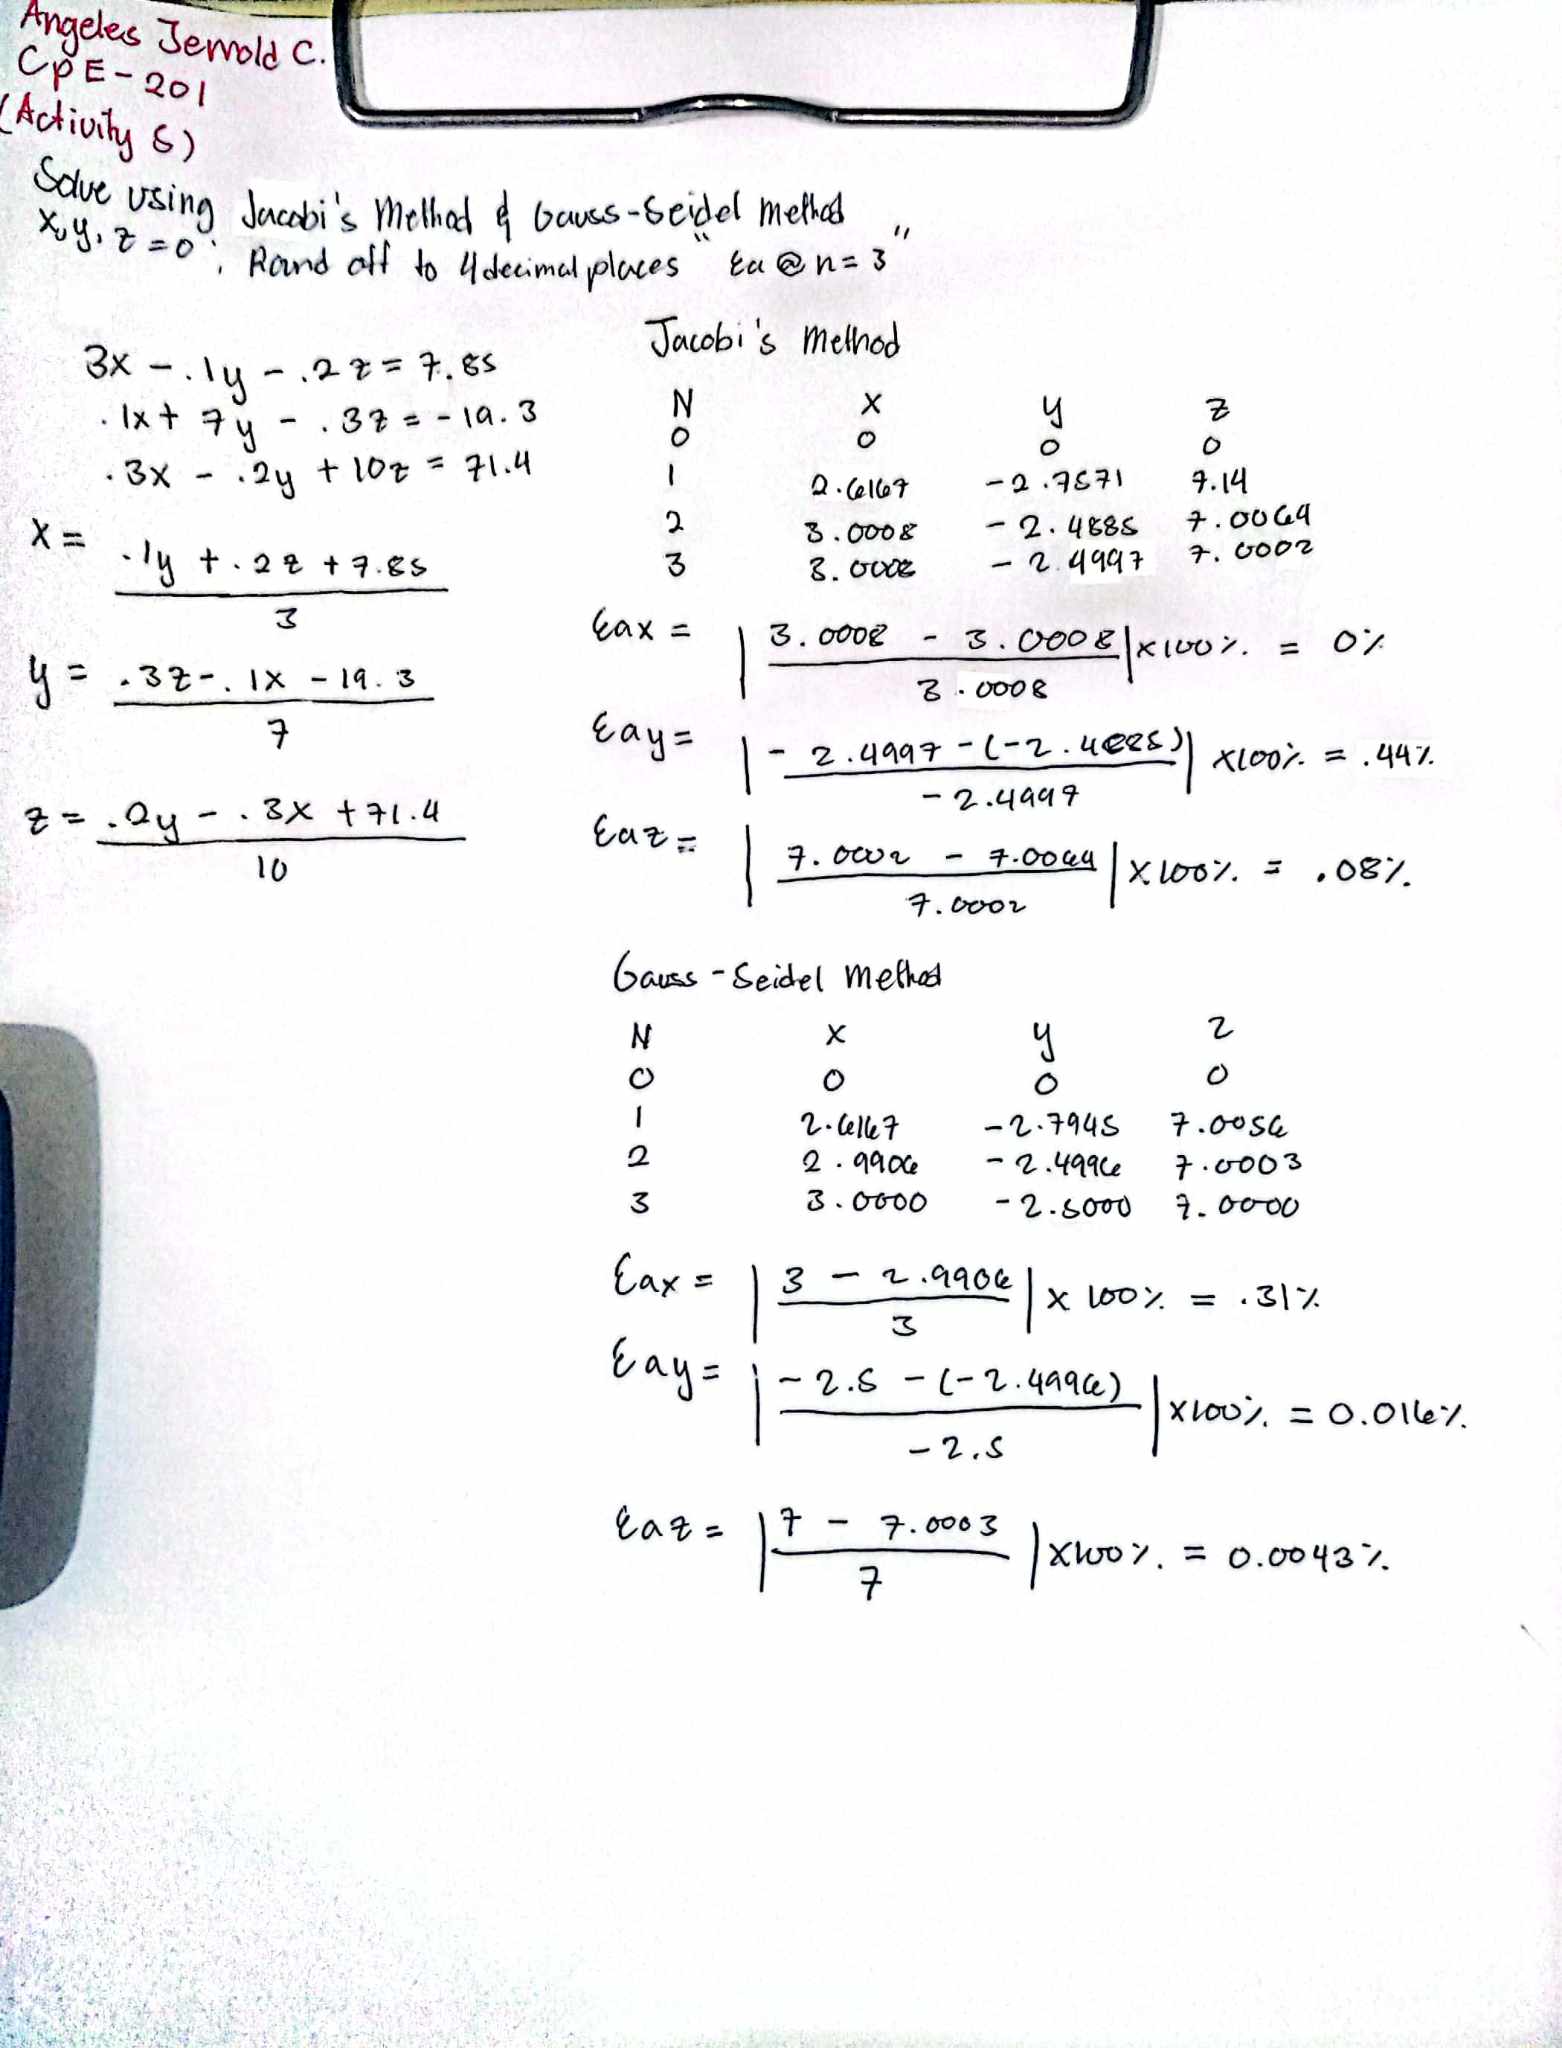 Angeles Jerrold C.
CpE-201
(Activity 5)
Solve using Jacobi's Method & Gauss-Seidel method
x, y, z = 0 ; Round off to 4 decimal places "Ea @ n = 3"
3x - .1y - .2z = 7.85
.1x + 7y - .3z = -19.3
.3x - .2y + 10z = 71.4
x = .1y + .2z + 7.85
3
y = .3z - .1x - 19.3
7
z = .2y - .3x + 71.4
10
Jacobi's Method
N x y z
0 0 0 0
1 2.6167 -2.7571 7.14
2 3.0008 -2.4885 7.0064
3 3.0008 -2.4997 7.0002
Eax = | 3.0008 - 3.0008 | x100% = 0%
3.0008
Eay = | -2.4997 - (-2.4885) | x100% = .44%
-2.4997
Eaz = | 7.0002 - 7.0064 | x100% = .08%
7.0002
Gauss-Seidel Method
N x y z
0 0 0 0
1 2.6167 -2.7945 7.0056
2 2.9906 -2.4996 7.0003
3 3.0000 -2.5000 7.0000
Eax = | 3 - 2.9906 | x 100% = .31%
3
Eay = | -2.5 - (-2.4996) | x100% = 0.016%
-2.5
Eaz = | 7 - 7.0003 | x100% = 0.0043%
7